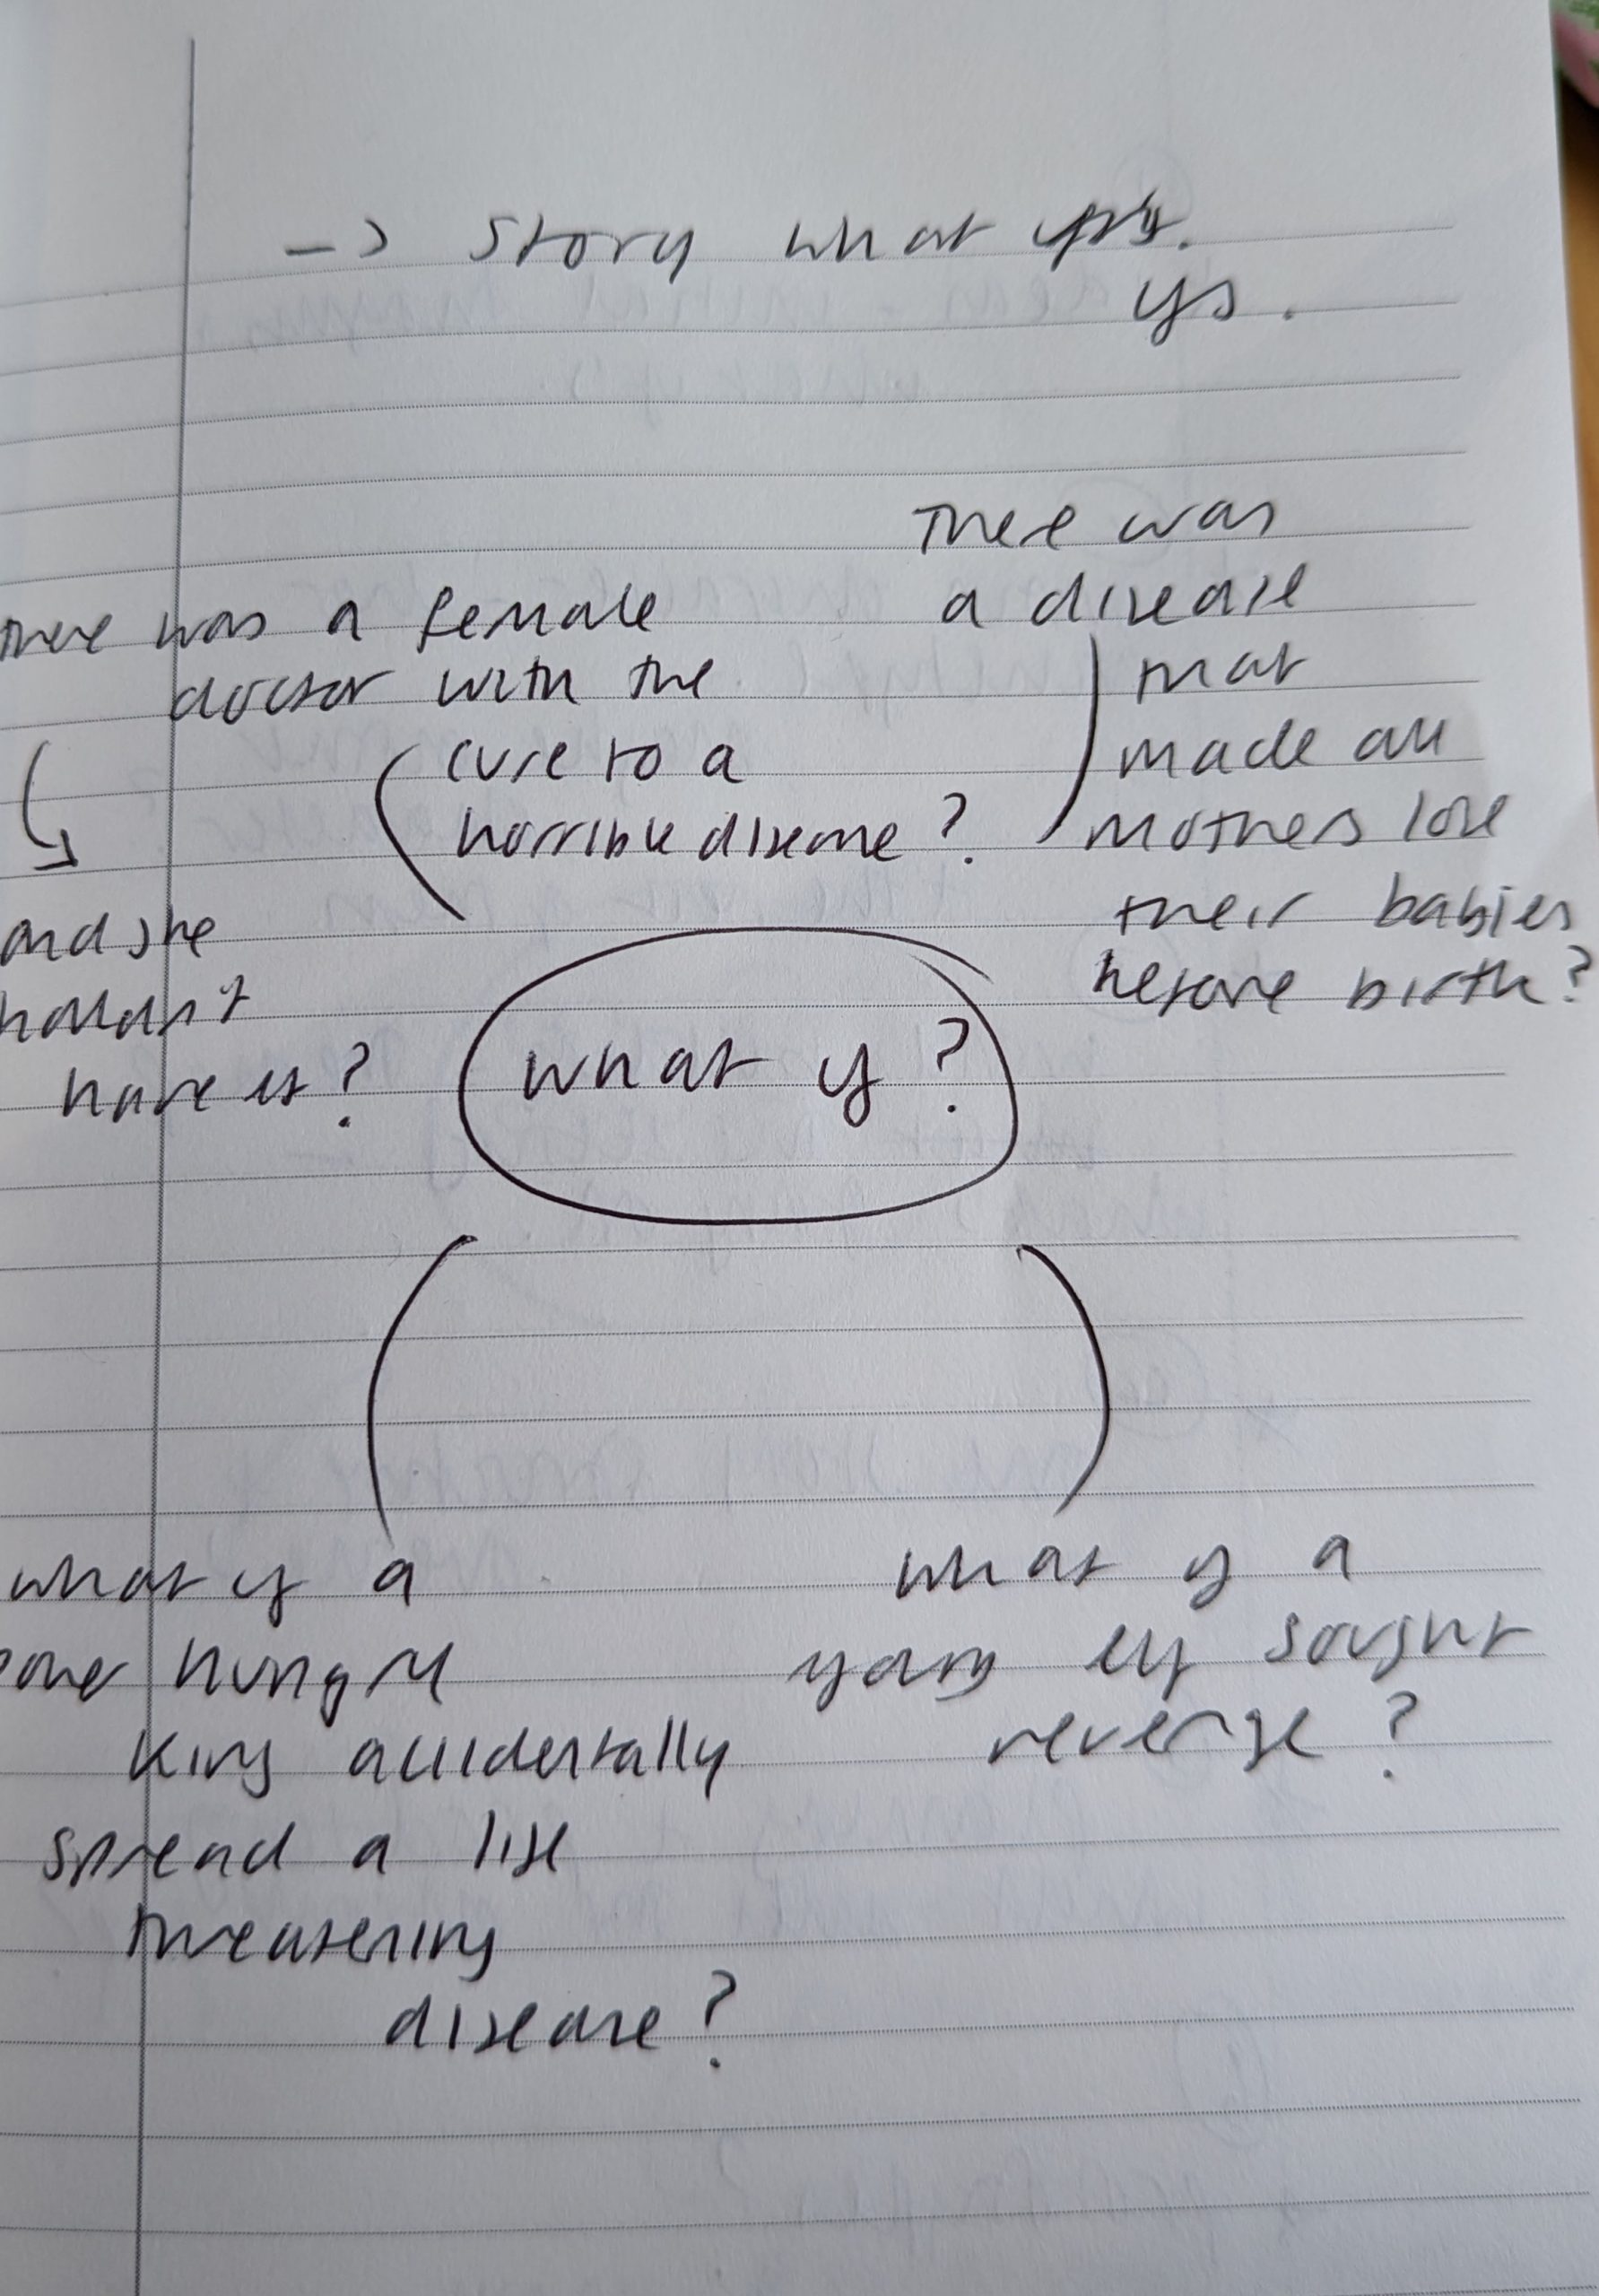 -> Story what
ifs.
there was a female
doctor with the
cure to a
horrible disease?
and she
shouldn't
have it?
There was
a disease
that
made all
mothers lose
their babies
before birth?
what if?
what if a
power hungry
king accidentally
spread a life
threatening
disease?
what if a
young elf sought
revenge?